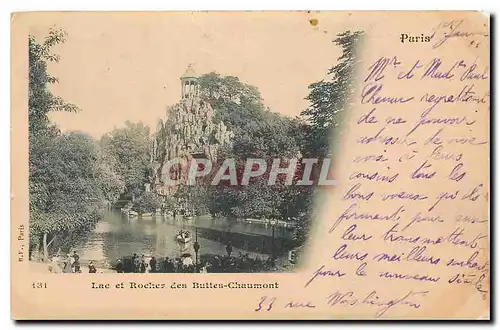 Paris
5 Janv
Mr et Mad. Paul
regrettent
de ne pouvoir
adresser de vive
voix à leurs
cousins tous les
bons voeux qu'ils
forment pour eux
leur transmettent
leurs meilleurs souhaits
pour le nouveau siècle
33 rue Washington
CPARAMA.COM
B.F., Paris
131 Lac et Rocher des Buttes-Chaumont